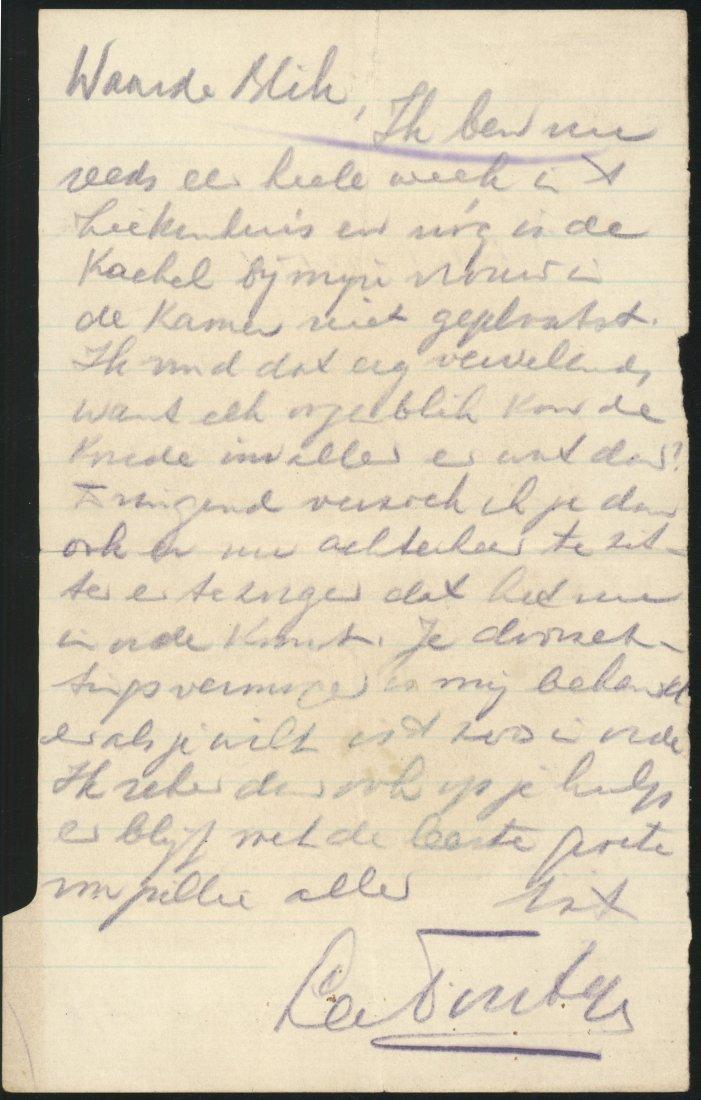 Waarde Blik, Ik ben nu
reeds een heele week in 't
ziekenhuis en nóg is de
Kachel bij mijn vrouw in
de Kamer niet geplaatst.
Ik vind dat erg vervelend,
want elk oogenblik kan de
Koude invallen en wat dan?
Dringend verzoek ik je dan
ook er nu achterheen te zit-
ten en te zorgen dat het nu
in orde komt. Je doorzet-
tingsvermogen is mij bekend
en als je wilt is 't zoo in orde
Ik reken dan ook op je hulp
en blijf met de beste groete
van jullie allen